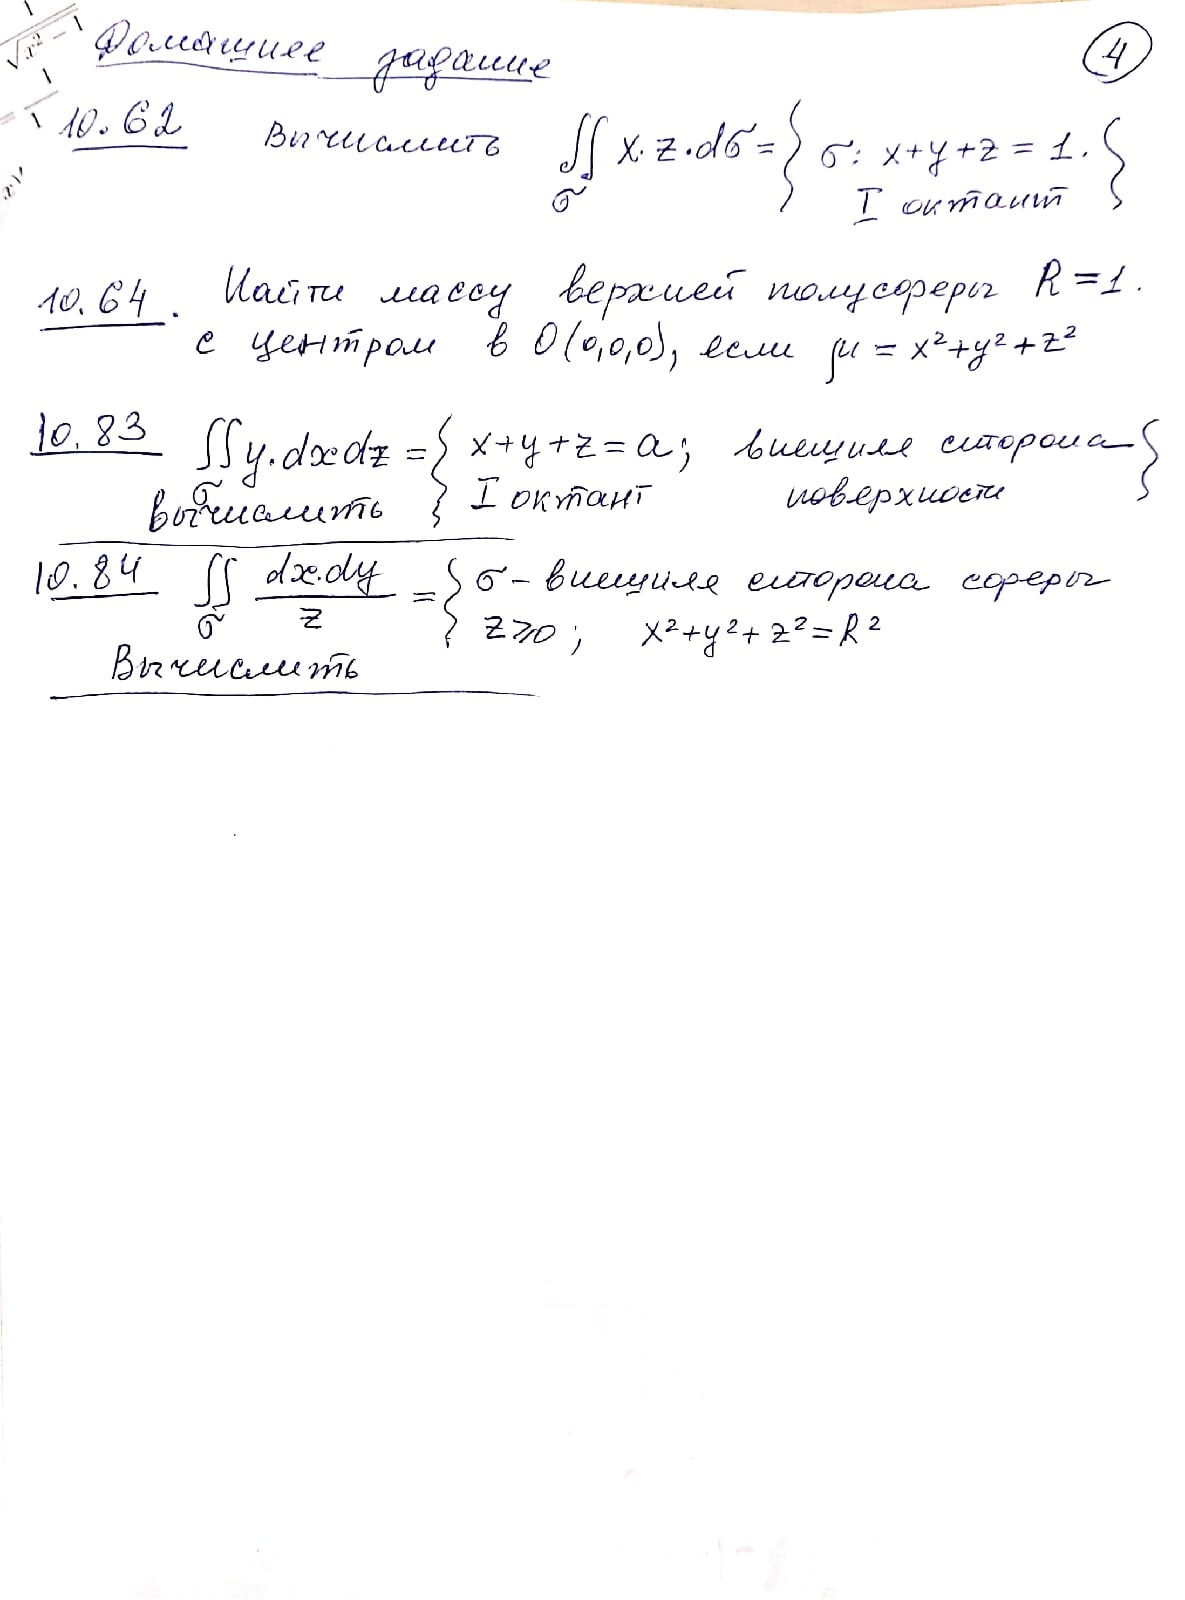 Домашнее задание
4
10.62 Вычислить ∬ x·z·dσ = { σ: x+y+z = 1.
σ I октант }
10.64. Найти массу верхней полусферы R=1.
с центром в O(0,0,0), если μ = x²+y²+z²
10.83 ∬ y·dxdz = { x+y+z = a; внешняя сторона
σ
Вычислить I октант поверхности }
10.84 ∬ dx·dy/z = { σ – внешняя сторона сферы
σ z⩾0; x²+y²+z²=R²
Вычислить